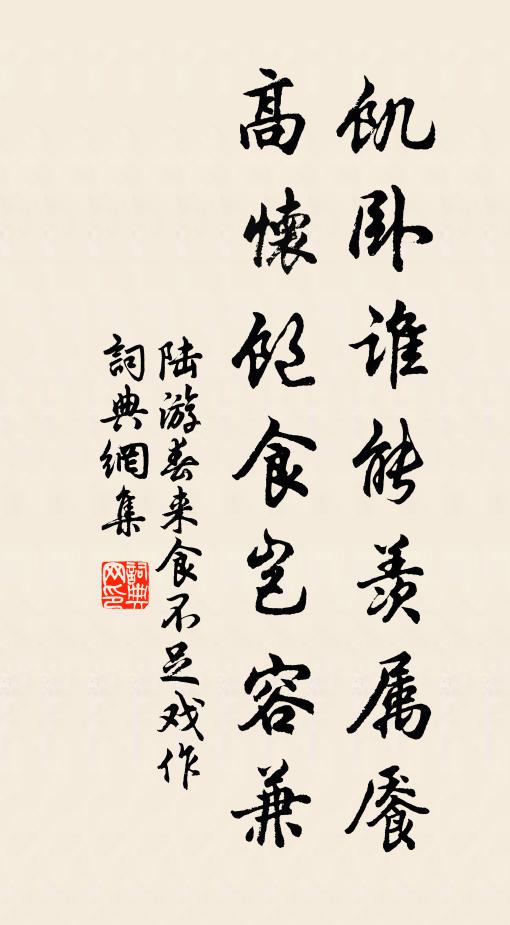 飢卧谁能羡属餍
高懷飽食岂容兼
陆游春来食不足戏作
詞典網集
詞典网印